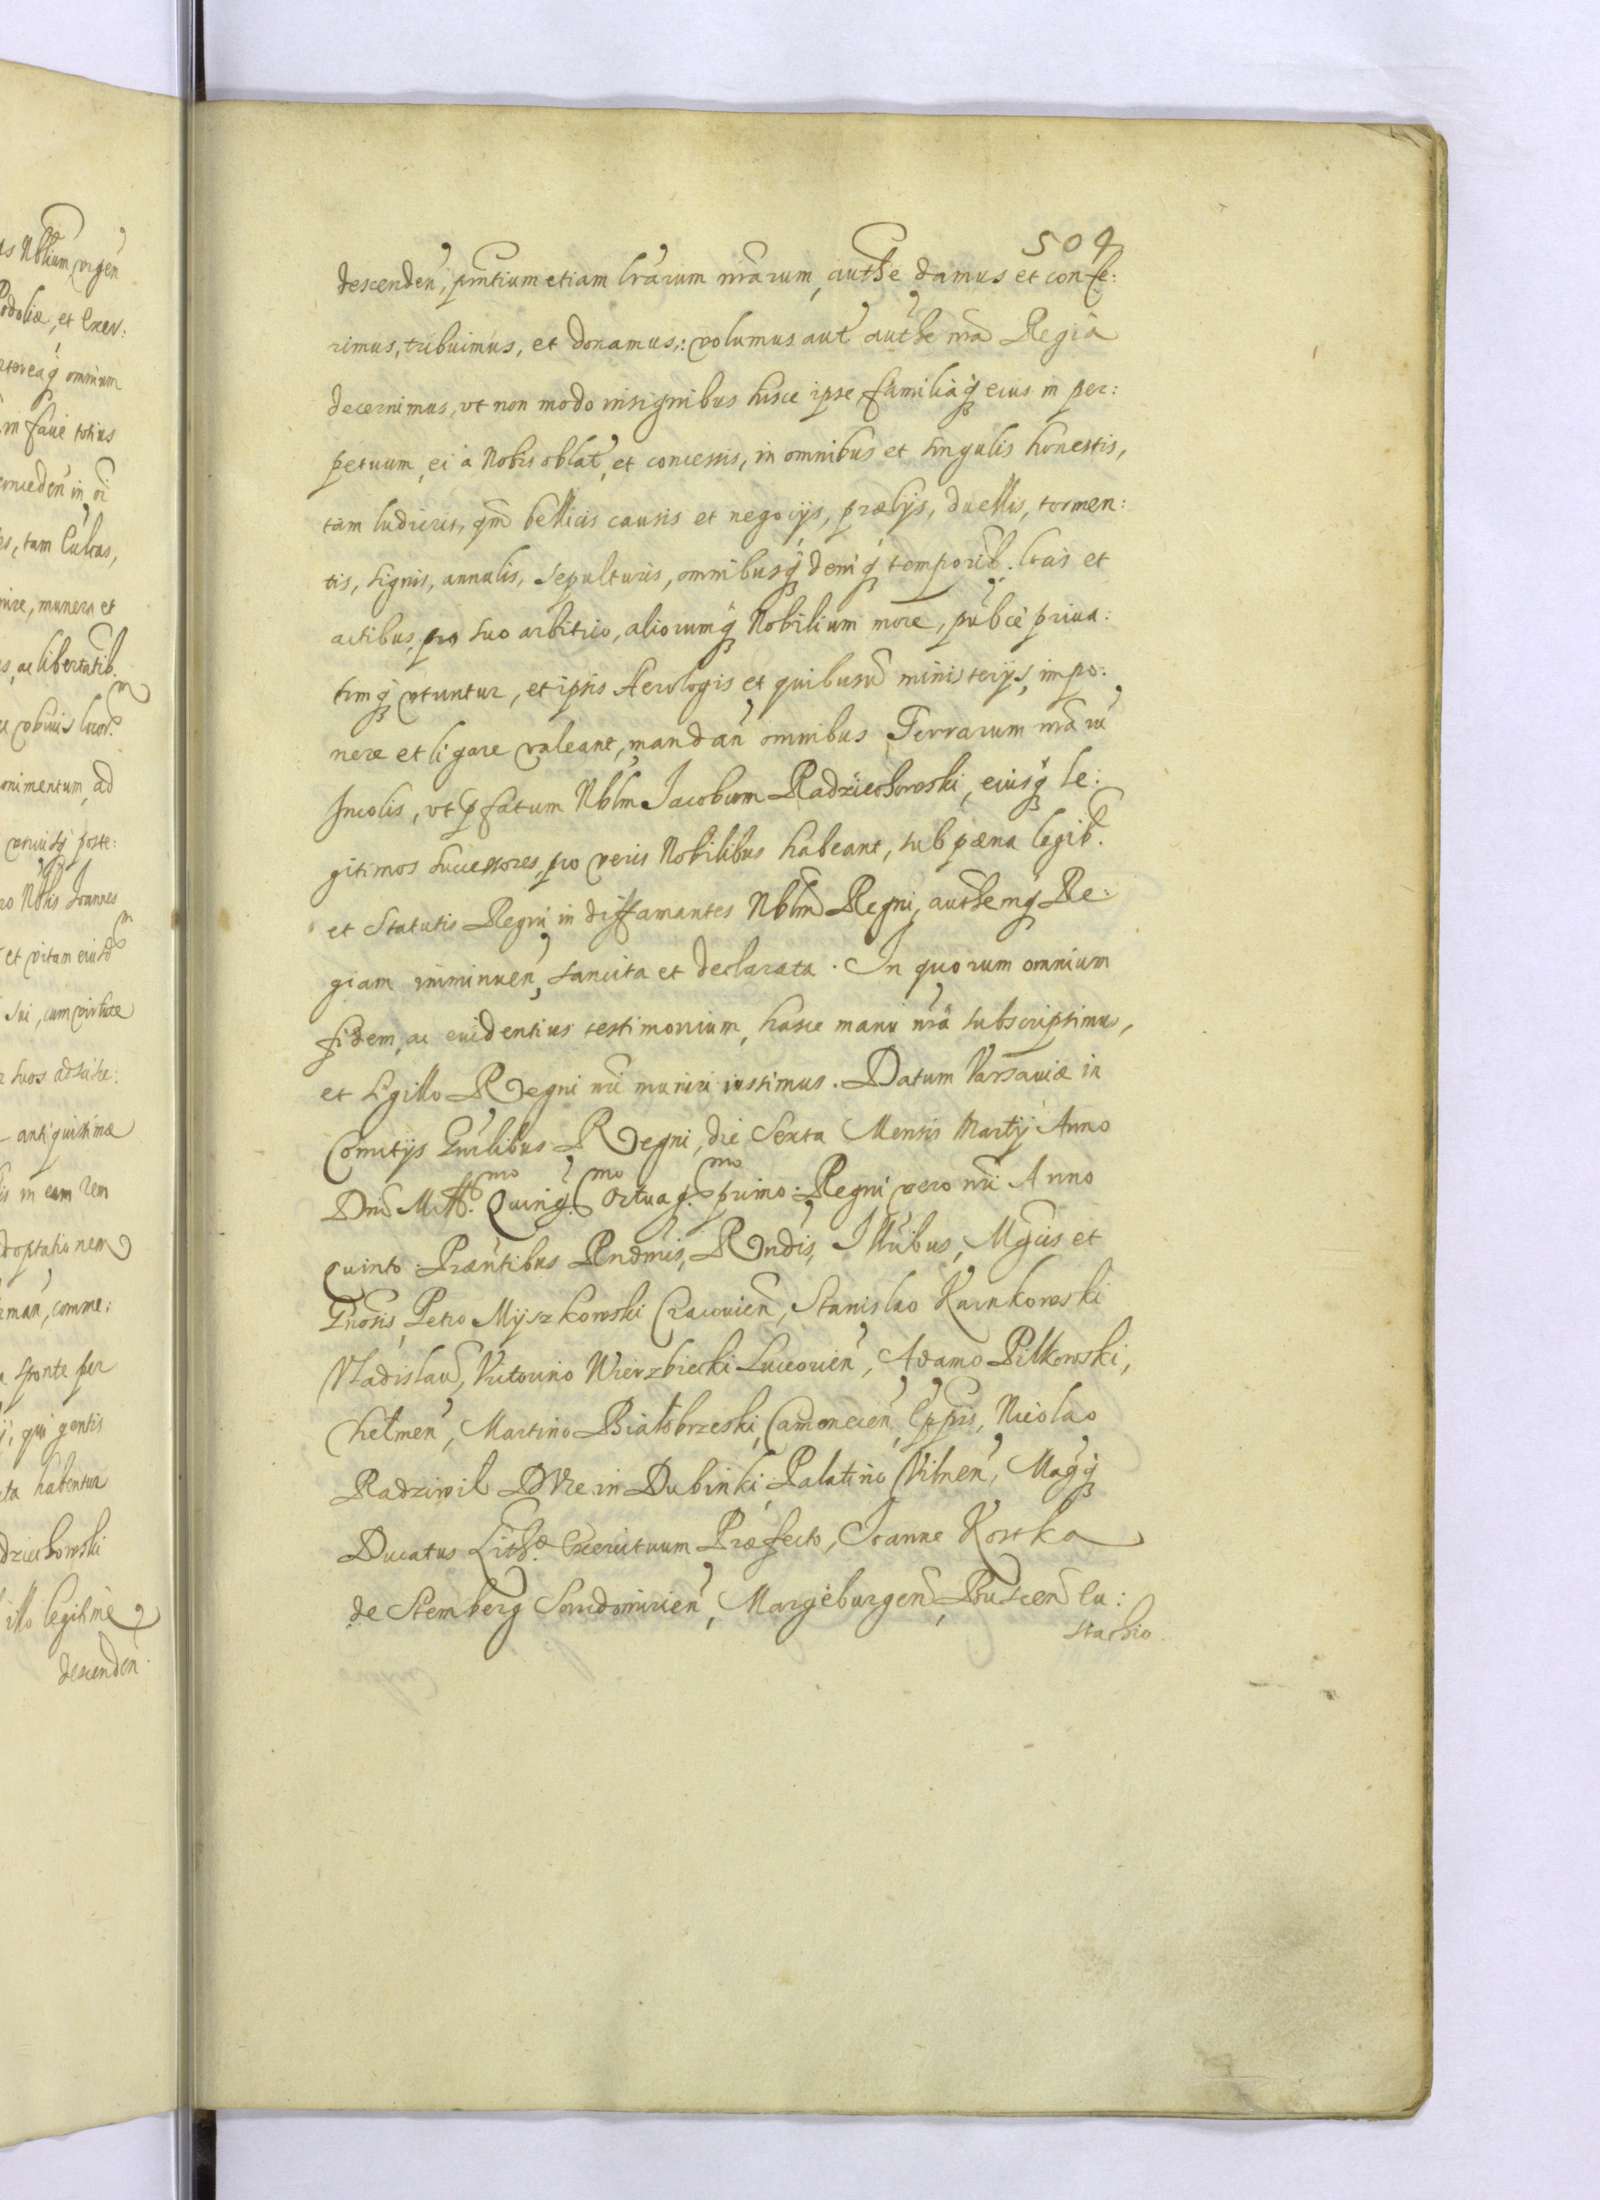 504
descendeñ, pñtium etiam lrarum nrarum, authe damus et confe:
rimus, tribuimus, et donamus: volumus aut authe nra Regia
decernimus, vt non modo insignibus hisce ipse familiaq eius in per:
petuum, ei a Nobis oblat, et concessis, in omnibus et singulis honestis,
tam ludicris, qm bellicis causis et negocijs, prælijs, duellis, tormen:
tis, signis, annulis, sepulturis, omnibusq deniq temporib. locis et
actibus, pro suo arbitrio, aliorumq Nobilium more, publce priua:
timq vtuntur, et ipsis Aerologis et quibusuis ministerijs, impo:
nere et ligare valeant, mandañ omnibus Terrarum nraru
Incolis, vt pfatum Nblm Jacobum Radziechowski, eiusq le:
gitimos successores, pro veris Nobilibus habeant, sub pæna legib.
et Statutis Regni in diffamantes Nblm Regni, authemq Re:
giam imminueñ, sancita et declarata. In quorum omnium
fidem, ac euidentius testimonium, hasce manu nra subscripsimus,
et Sigillo Regni nri muniri iussimus. Datum Varsauiæ in
Comitijs Gnrlibus Regni, die Sexta Mensis Martij Anno
Dni Millmo. Quingmo. Octuagmo. primo. Regni vero nri Anno
Quinto. Præntibus Rndmis, Rndis, Illribus, Mgcis et
Gnosis, Petro Myszkowski Cracouieñ, Stanislao Karnkowski
Vladislau, Victorino Wierzbiecki Luceorieñ, Adamo Pilkowski,
Chełmeñ, Martino Białobrzeski, Camenecieñ, Eppis, Nicolao
Radziwil Duce in Dubinki Palatino Vilneñ, Magq
Ducatus Lithæ. Exercituum Præfecto, Joanne Kostka
de Stemberg Sendomirieñ, Margeburgeñ, Pusceñ Eu:
stachio